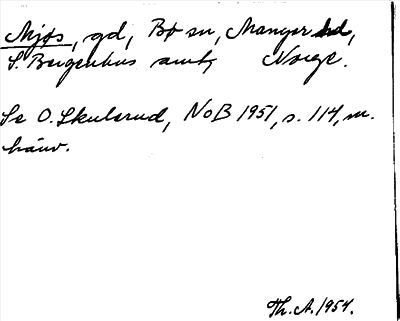 Mjøs, gd, Bø sn, Manger hd,
S. Bergenhus amt, Norge.
Se O. Skulerud, NoB 1951, s. 114, m.
hänv.
Th. A. 1954.